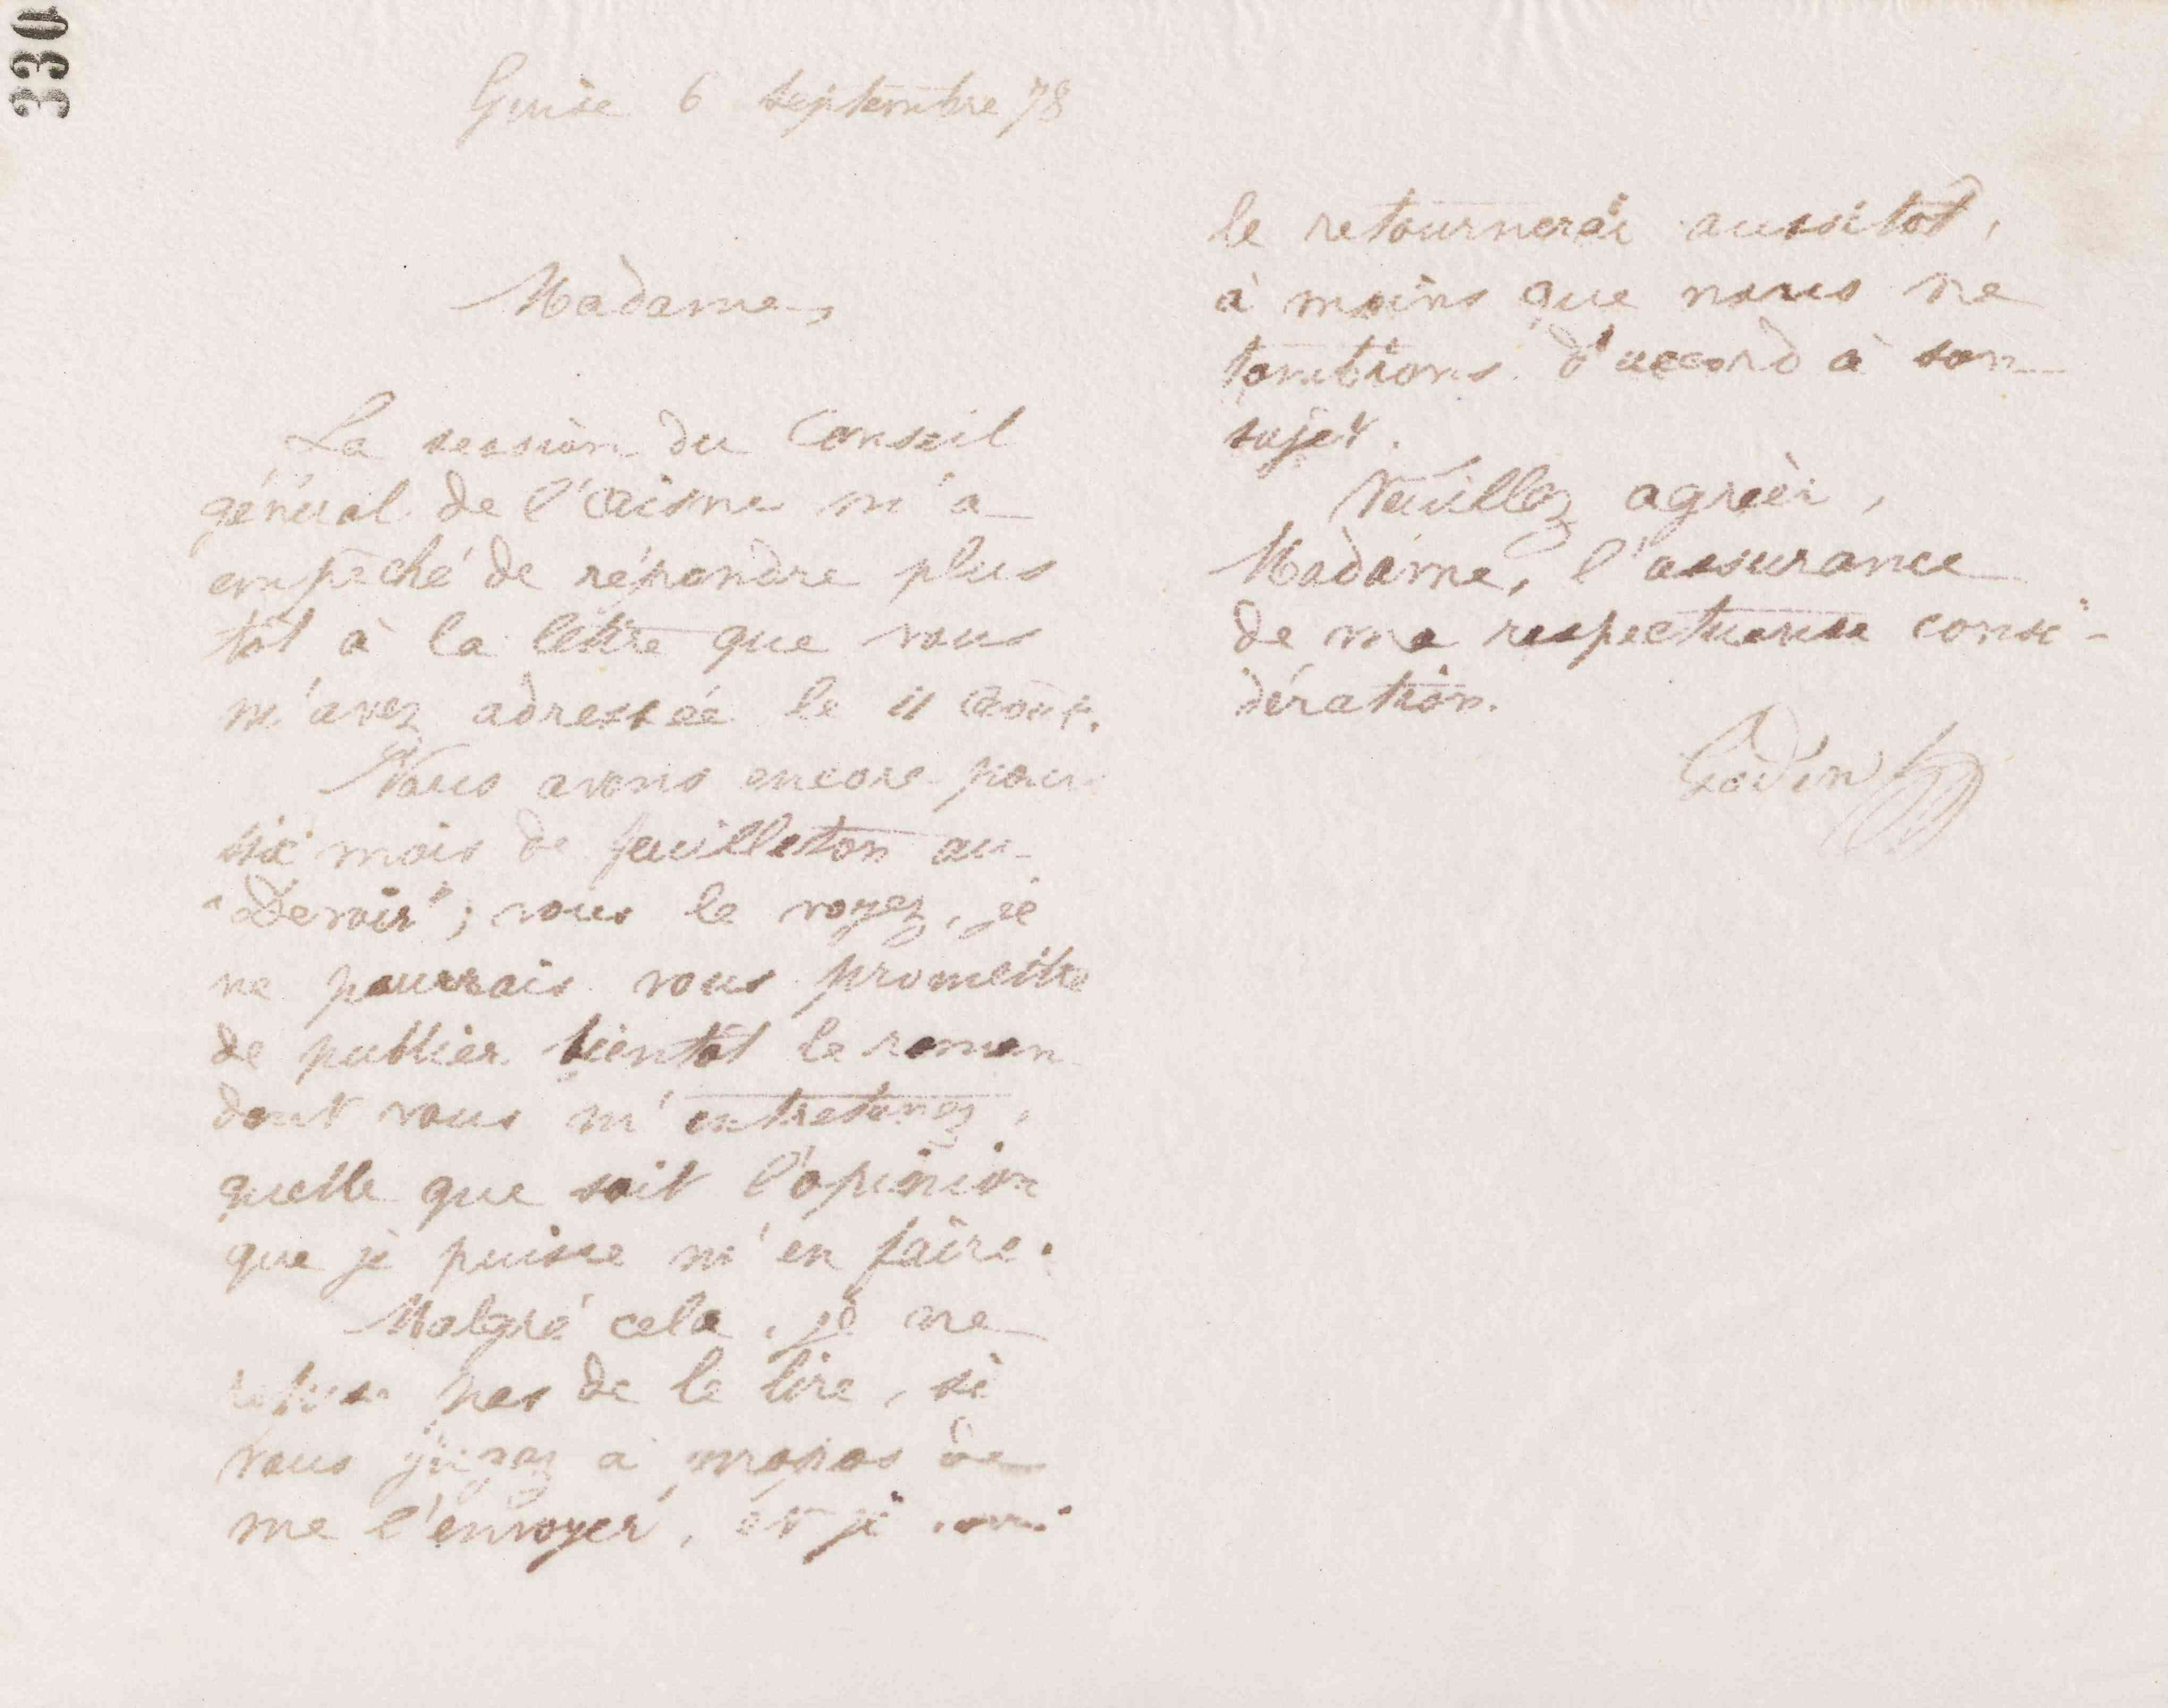 330
Guise 6 septembre 78
Madame,
La session du Conseil
général de l'Aisne m'a
empêché de répondre plus
tôt à la lettre que vous
m'avez adressée le 11 Août.
Nous avons encore pour
six mois de feuilleton au
"Devoir"; vous le voyez, je
ne pourrais vous promettre
de publier bientôt le roman
dont vous m'entretenez,
quelle que soit l'opinion
que je puisse m'en faire.
Malgré cela, je ne
refuse pas de le lire, si
vous jugez à propos de
me l'envoyer, et je vous
le retournerai aussitôt,
à moins que nous ne
tombions d'accord à son
sujet.
Veuillez agréer,
Madame, l'assurance
de ma respectueuse consi-
dération.
Godin